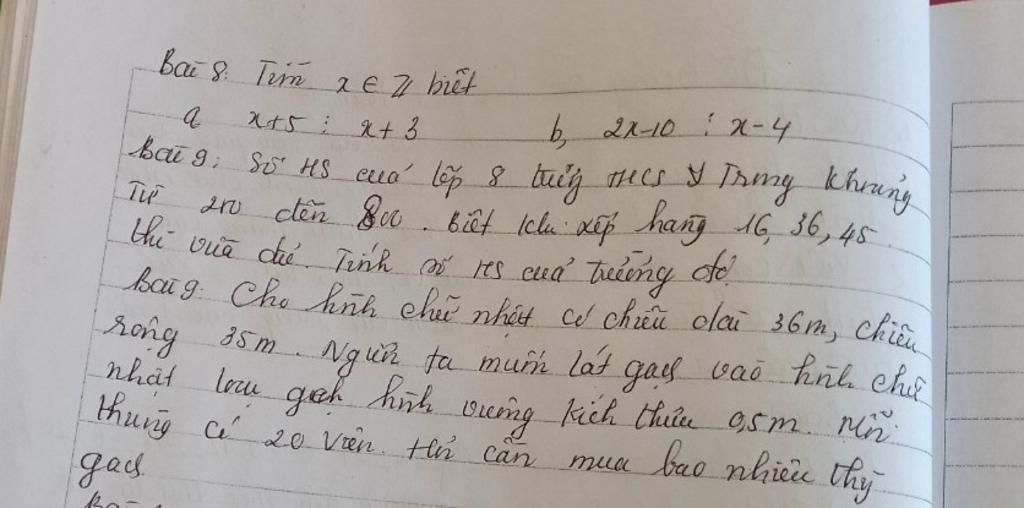 Bài 8: Tìm x ∈ Z biết
a, x+5 ⋮ x+3 b, 2x-10 ⋮ x-4
Bài 9: Số HS của lớp 8 trường THCS Y Trung khoảng
Từ 200 đến 800. Biết khi xếp hàng 16, 36, 45
thì vừa đủ. Tính số HS của trường đó.
Bài 9: Cho hình chữ nhật có chiều dài 36m, chiều
rộng 35m. Người ta muốn lát gạch vào hình chữ
nhật loại gạch hình vuông kích thước 0,5m. Mỗi
thùng có 20 viên. Hỏi cần mua bao nhiêu thg
gạch